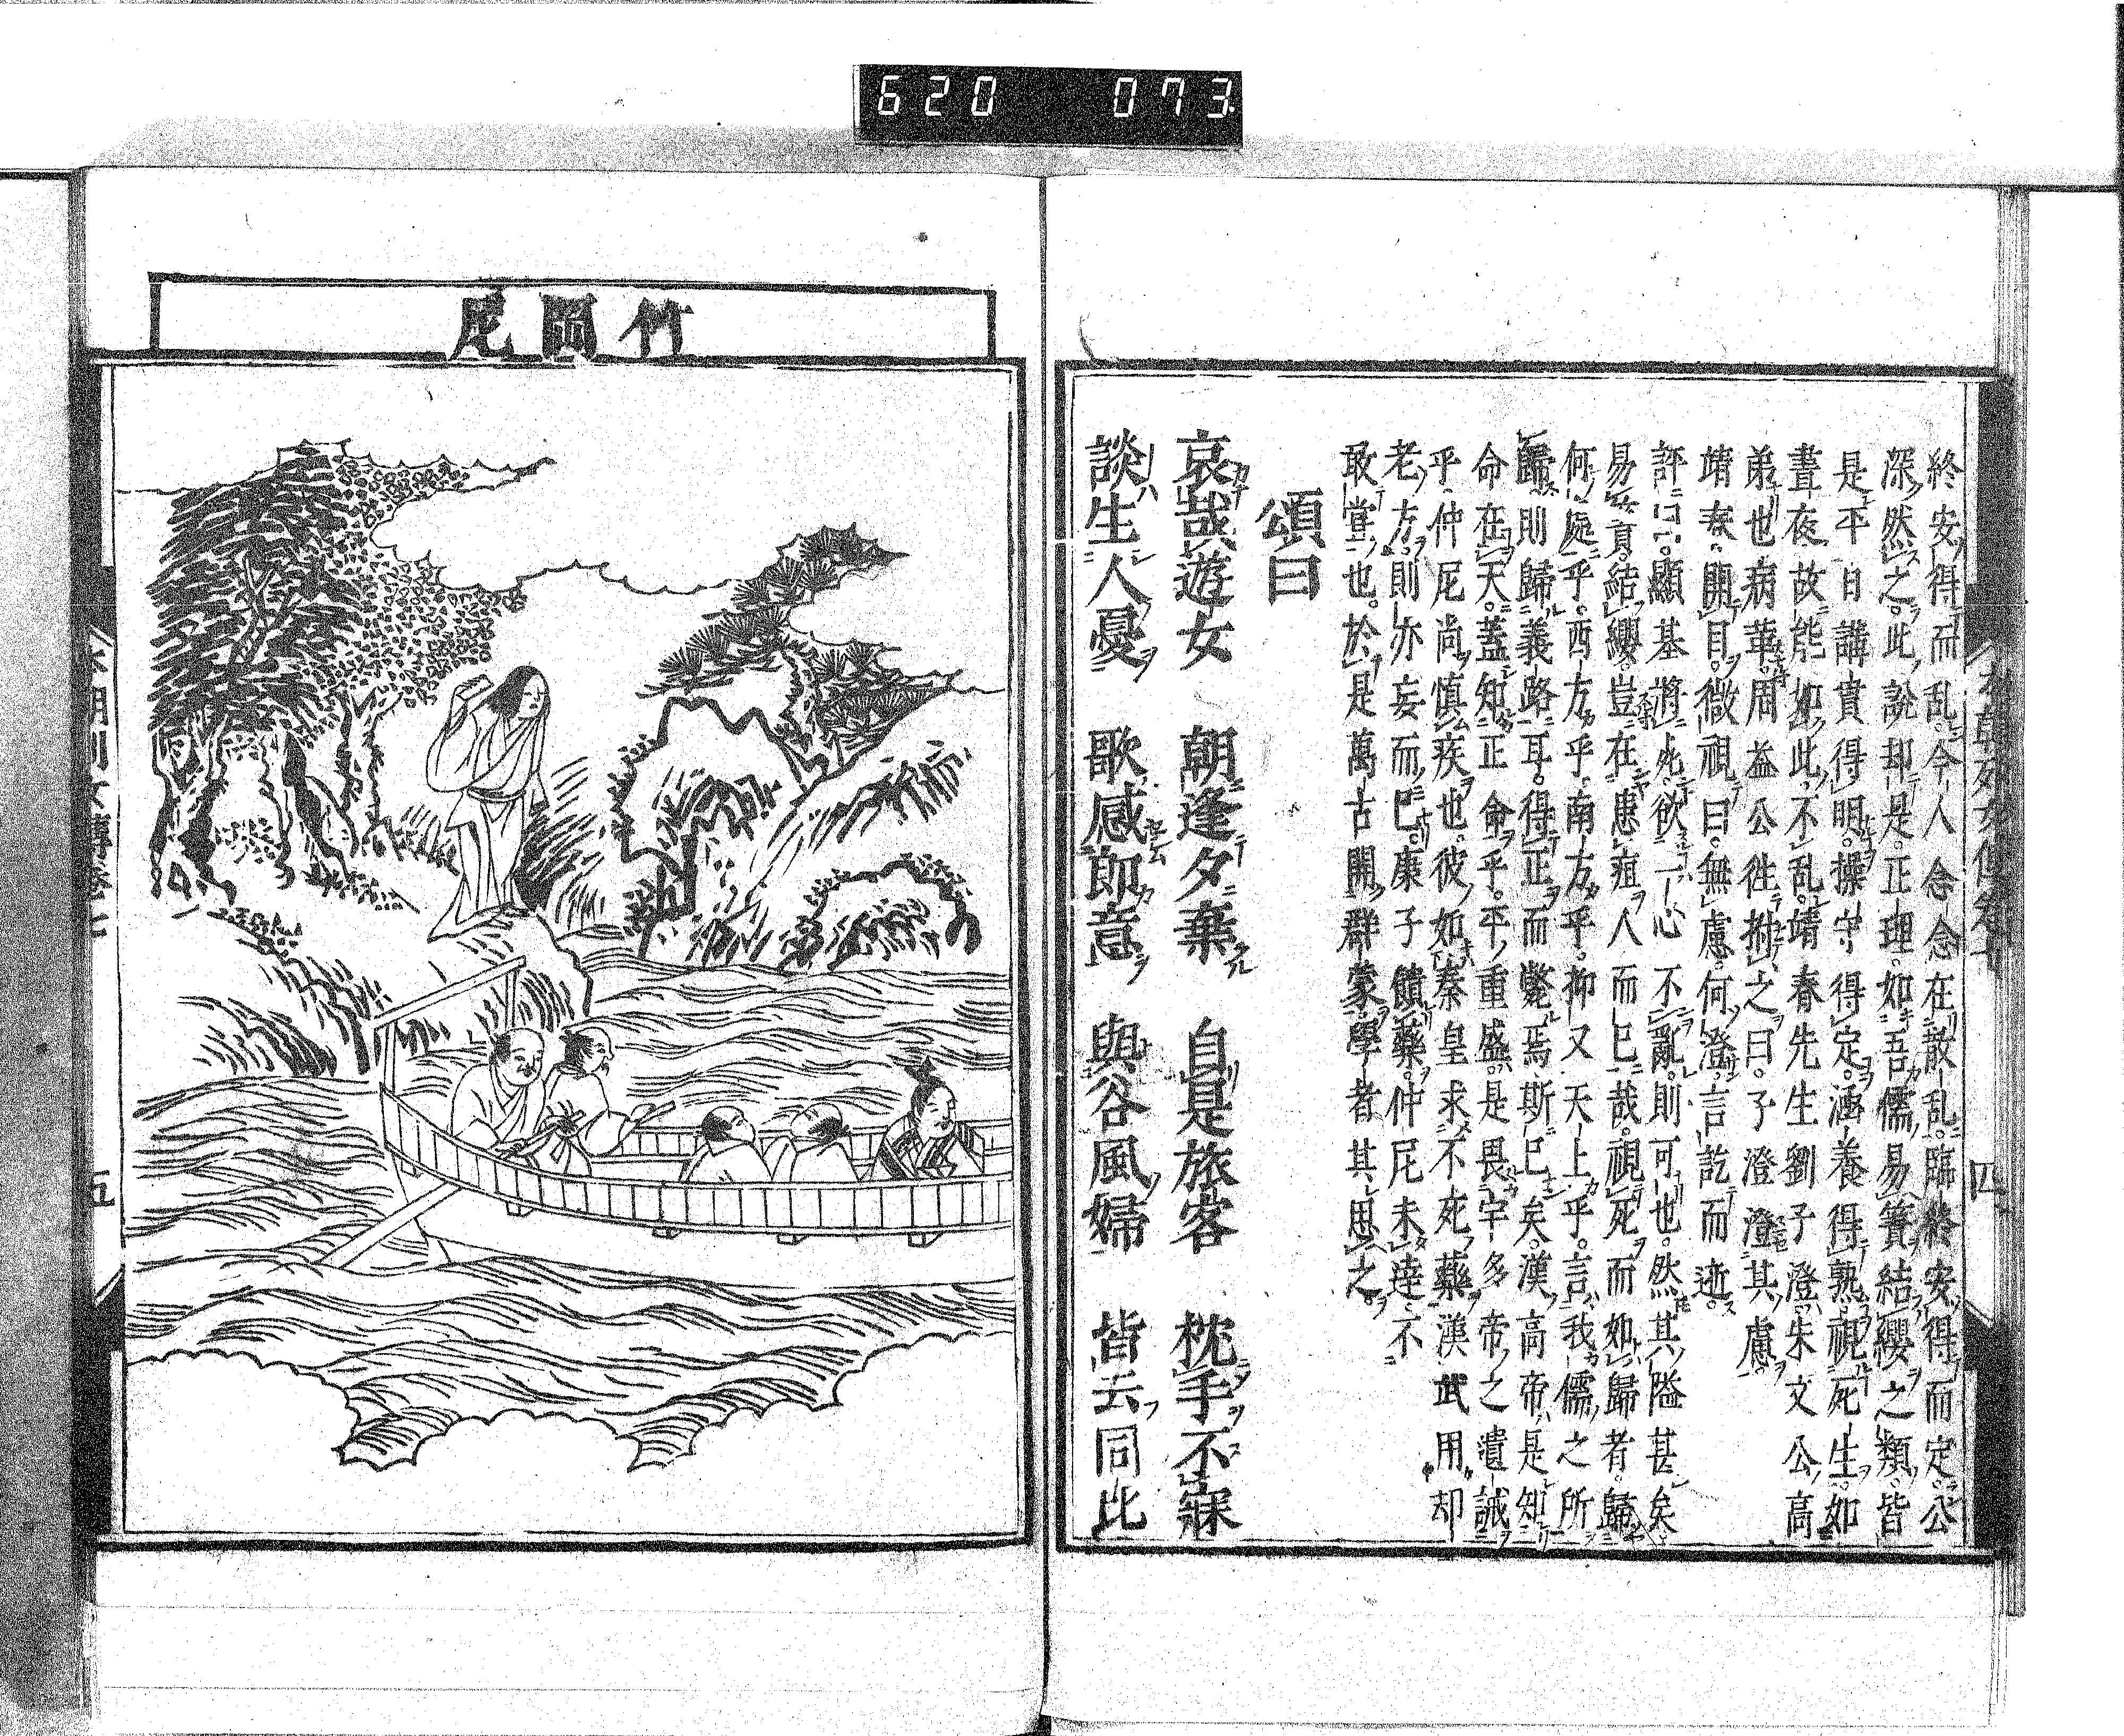 620 073
終安得而乱今人念念在散乱臨終安得而定公
深然之此說却是正理如吾儒易簀結纓之類皆
是平日講貫得明操守得定涵養得熟視死生如
晝夜故能如此不乱靖春先生劉子澄朱文公高
弟也病革周益公徃拊之曰子澄澄其慮
靖春開目微視曰無慮何澄言訖而逝
評曰顯基將死欲一心不亂則可也然其隘甚矣
易簀結纓豈在患疽人而已哉視死而如歸者歸
何處乎西方乎南方乎抑又天上乎言我儒之所
歸則歸義路耳得正而斃焉斯已矣漢高帝是知
命在天蓋知正命乎平重盛是畏宇多帝之遺誡
乎仲尼尚慎疾也彼如秦皇求不死藥漢武用却
老方則亦妄而已康子饋藥仲尼未達不
敢嘗也於是萬古開群蒙學者其思之
頌曰
哀哉遊女 朝逢夕棄 自是旅客 枕手不寐
談生人憂 歌感郎意 與谷風婦 皆云同比
本朝列女傳卷七 四
竹岡尼
本朝列女傳卷七 五